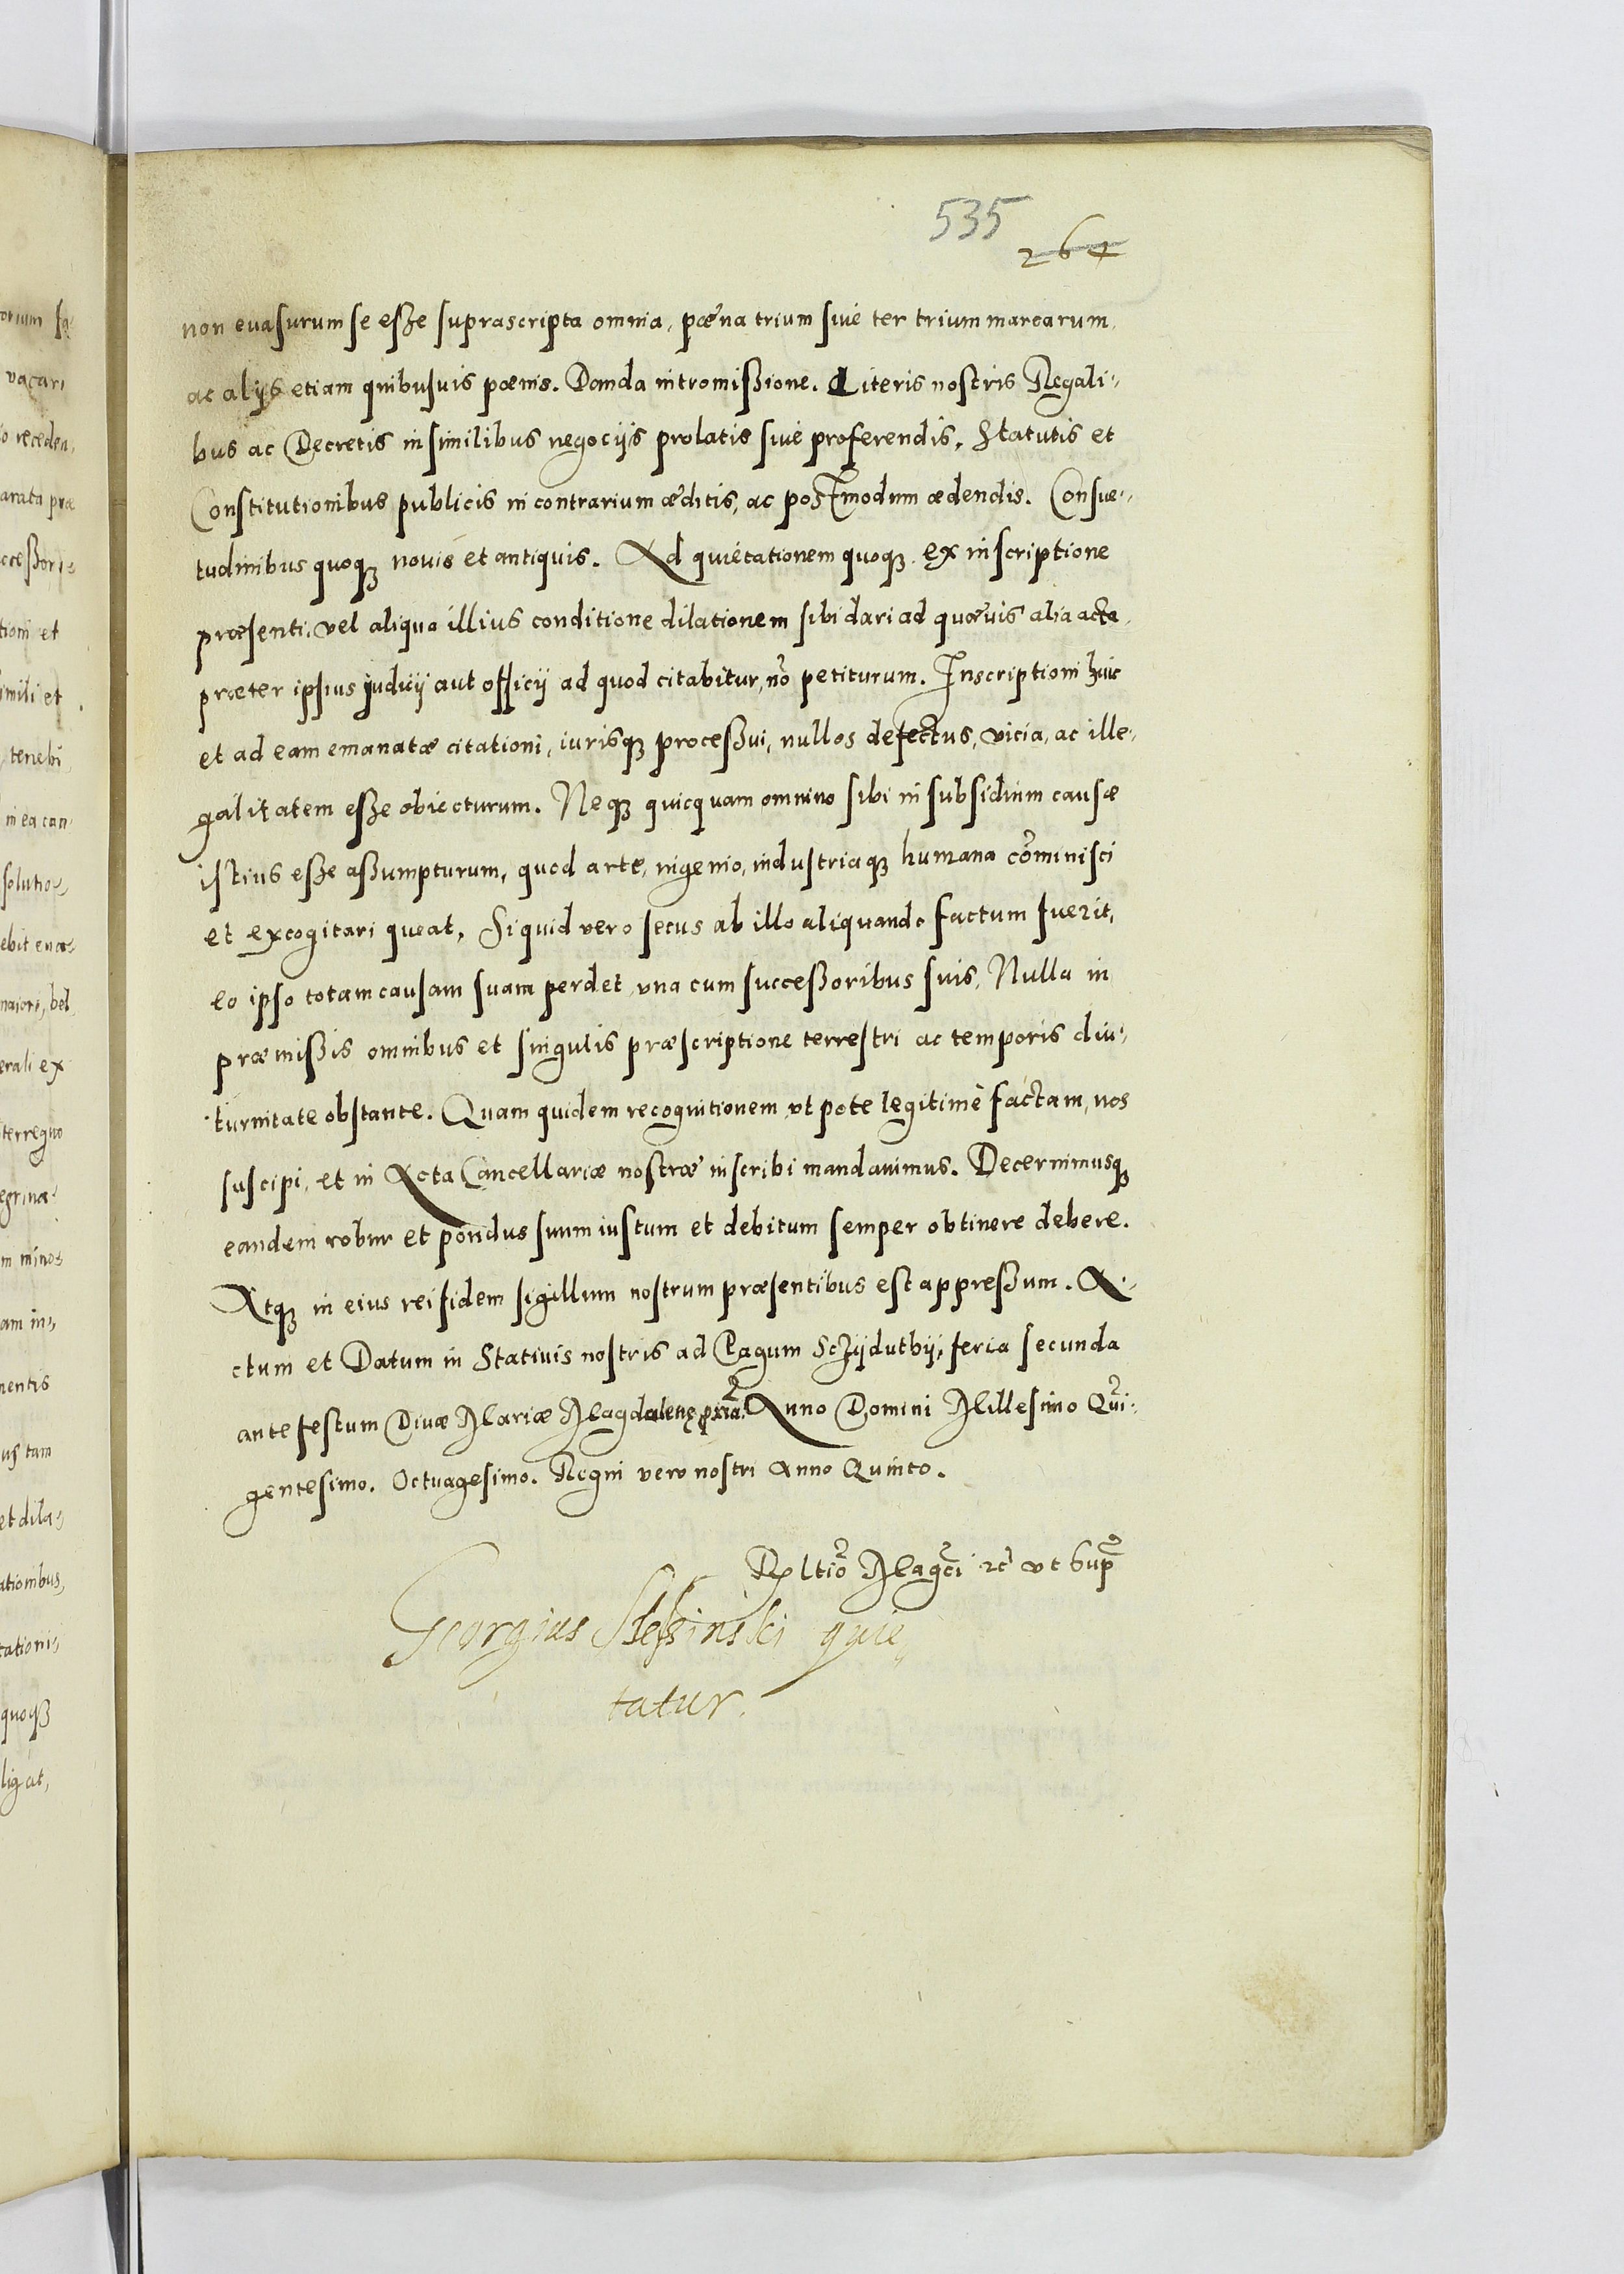 535
264
non euasurum se esse suprascripta omnia, pœna trium siue ter trium marcarum,
ac alijs etiam quibusuis pœnis. Danda intromissione. Literis nostris Regali-
bus ac Decretis in similibus negocijs prolatis siue proferendis, Statutis et
Constitutionibus publicis in contrarium æditis, ac postmodum ædendis. Consue-
tudinibus quoqꝫ nouis et antiquis. Ad quietationem quoqꝫ ex inscriptione
præsenti, vel aliqua illius conditione dilationem sibi dari ad quæuis alia acta,
præter ipsius judicij aut officij ad quod citabitur, nõ petiturum. Inscriptioni huic
et ad eam emanatæ citationi, iurisqꝫ processui, nullos defectus, vicia, ac ille-
galitatem esse obiecturum. Neqꝫ quicquam omnino sibi in subsidium causæ
istius esse assumpturum, quod arte, ingenio, industriaqꝫ humana cõminisci
et excogitari queat, Siquid vero secus ab illo aliquando factum fuerit,
eo ipso totam causam suam perdet vna cum successoribus suis, Nulla in
præmissis omnibus et singulis præscriptione terrestri ac temporis diu-
turnitate obstante. Quam quidem recognitionem vt pote legitimè factam, nos
suscipi, et in Acta Cancellariæ nostræ inscribi mandauimus. Decernimusqꝫ
eandem robur et pondus suum iustum et debitum semper obtinere debere.
Atqꝫ in eius rei fidem sigillum nostrum præsentibus est appressum. A-
ctum et Datum in Statiuis nostris ad Pagum Sczijduthij, feria secunda
ante festum Diuæ Mariæ Magdalenę Anno Domini Millesimo Qui-
gentesimo. Octuagesimo. Regni vero nostri Anno Quinto.
Rltio Magci ꝛc vt Sup
Georgius quie-
tatur.